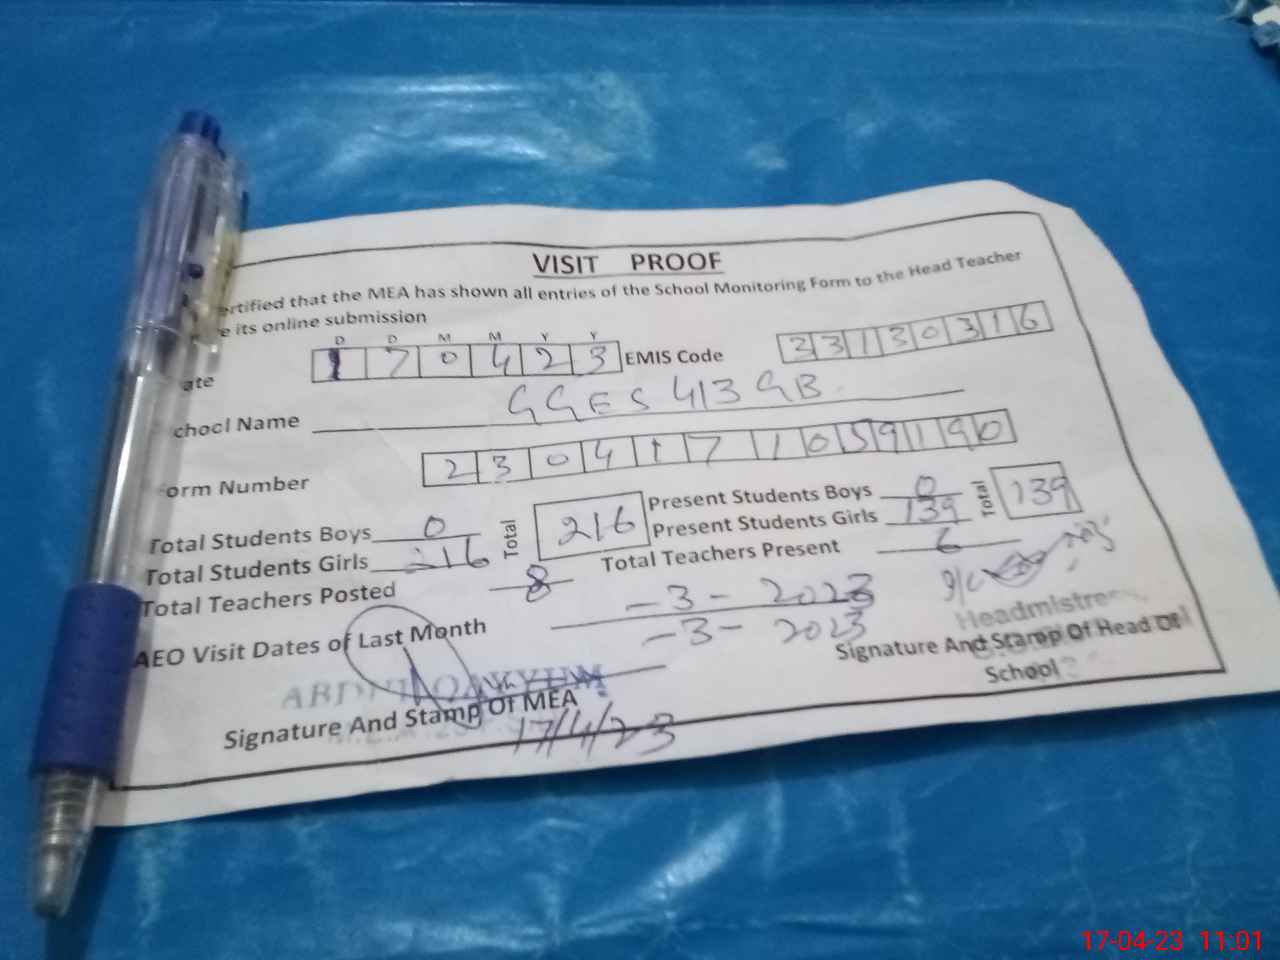 VISIT PROOF
ertified that the MEA has shown all entries of the School Monitoring Form to the Head Teacher
e its online submission
D D M M Y Y
ate 1 7 0 4 2 3 EMIS Code 3 3 1 3 0 3 1 6
chool Name GGES 413 GB
orm Number 2 3 0 4 1 7 1 0 5 9 1 9 0
Total Students Boys 0 Total 216 Present Students Boys 0 Total 139
Total Students Girls 216 Present Students Girls 139
Total Teachers Posted 8 Total Teachers Present 6
AEO Visit Dates of Last Month -3- 2023
-3- 2023
Headmistre
ABDUL QAYYUM
Signature And Stamp Of MEA
17/4/23
Signature And Stamp Of Head Of
School
17-04-23 11:01